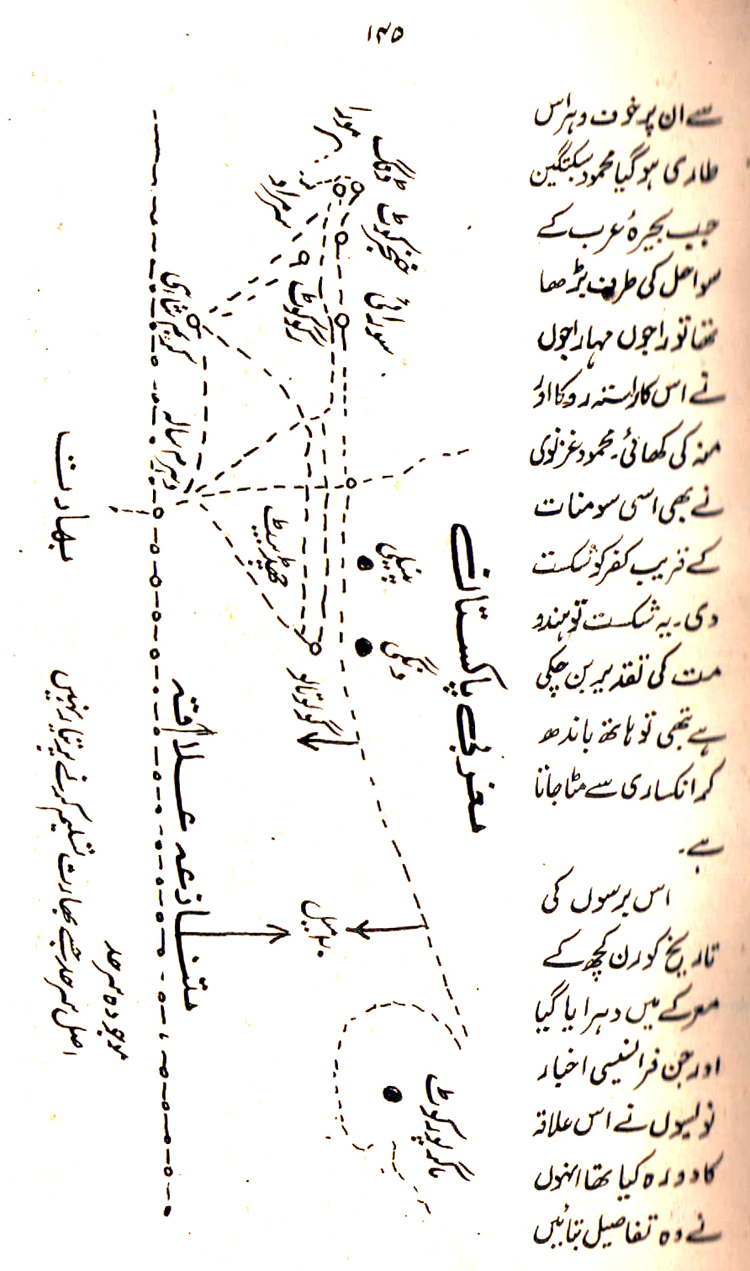 ۱۴۵
سے ان پر خوف و ہراس
طاری ہو گیا محمود سبکتگین
جب بحیرۂ عرب کے
سواحل کی طرف بڑھا
تھا تو راجوں مہاراجوں
نے اس کا راستہ روکا اور
منہ کی کھائی۔ محمود غزنوی
نے بھی اسی سومنات
کے قریب کفر کو شکست
دی۔ یہ شکست تو ہندو
مت کی تقدیر بن چکی
ہے تبھی تو ہاتھ باندھ
کر انکساری سے مٹا جاتا
ہے۔
اس برسوں کی
تاریخ کو رن کچھ کے
معرکے میں دہرایا گیا
اور جن فرانسیسی اخبار
نویسوں نے اس علاقہ
کا دورہ کیا تھا انہوں
نے وہ تفاصیل بتائیں
مغربی پاکستان
ڈنگ
مورا
خنجر کوٹ
سرائی
کوٹ
کریم شاہی
دہرم سالہ
چھڈ بیٹ
ونگی
نگر پارکر
۲۰ میل
متنازعہ علاقہ
بھارت
موجودہ سرحد
اصل سرحد جسے بھارت تسلیم کرنے پر تیار نہیں